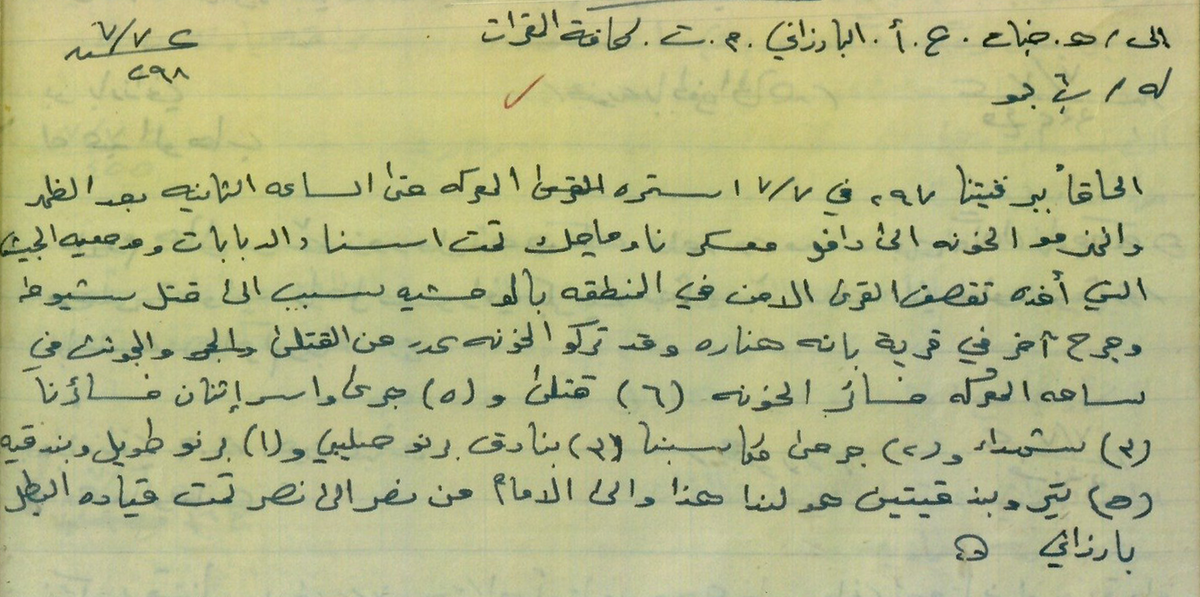 الى / هـ. خبات. ع. أ. البارزاني. م. ت. لكافة المقرات
٧/٧
٢٩٨
له / بتجو
الحاقاً ببرقيتنا ٢٩٧ في ٧/٧ استمره المعركه حتى الساعه الثانيه بعد الظهر
والمنزمو الخونه الى دافو معسكر ناوماحك تحت اسناد الدبابات ومدفعيه الجيش
التي أخذه تقصف القرى الامن في المنطقه بالوحشيه سبب الى قتل شيوط
وجرح آخر في قرية بانه هناره وقد تركو الخونه عدد من القتلى والجثث في
ساحه المعركه خسائر الخونه (٦) قتلى و (٥) جرحى واسر إثنان خسائرنا
(٣) شهداء و (٢) جرحى مكاسبنا (٣) بنادق برنو صليبي و (١) برنو طويل وبندقيه
(٥) تير وبندقيتين سمولندا هذا والى الامام من نصر الى نصر تحت قياده البطل
بارزاني